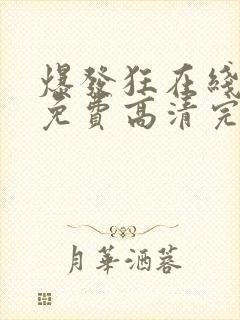 爆發狂在綫
免費高清完
月華酒蓉